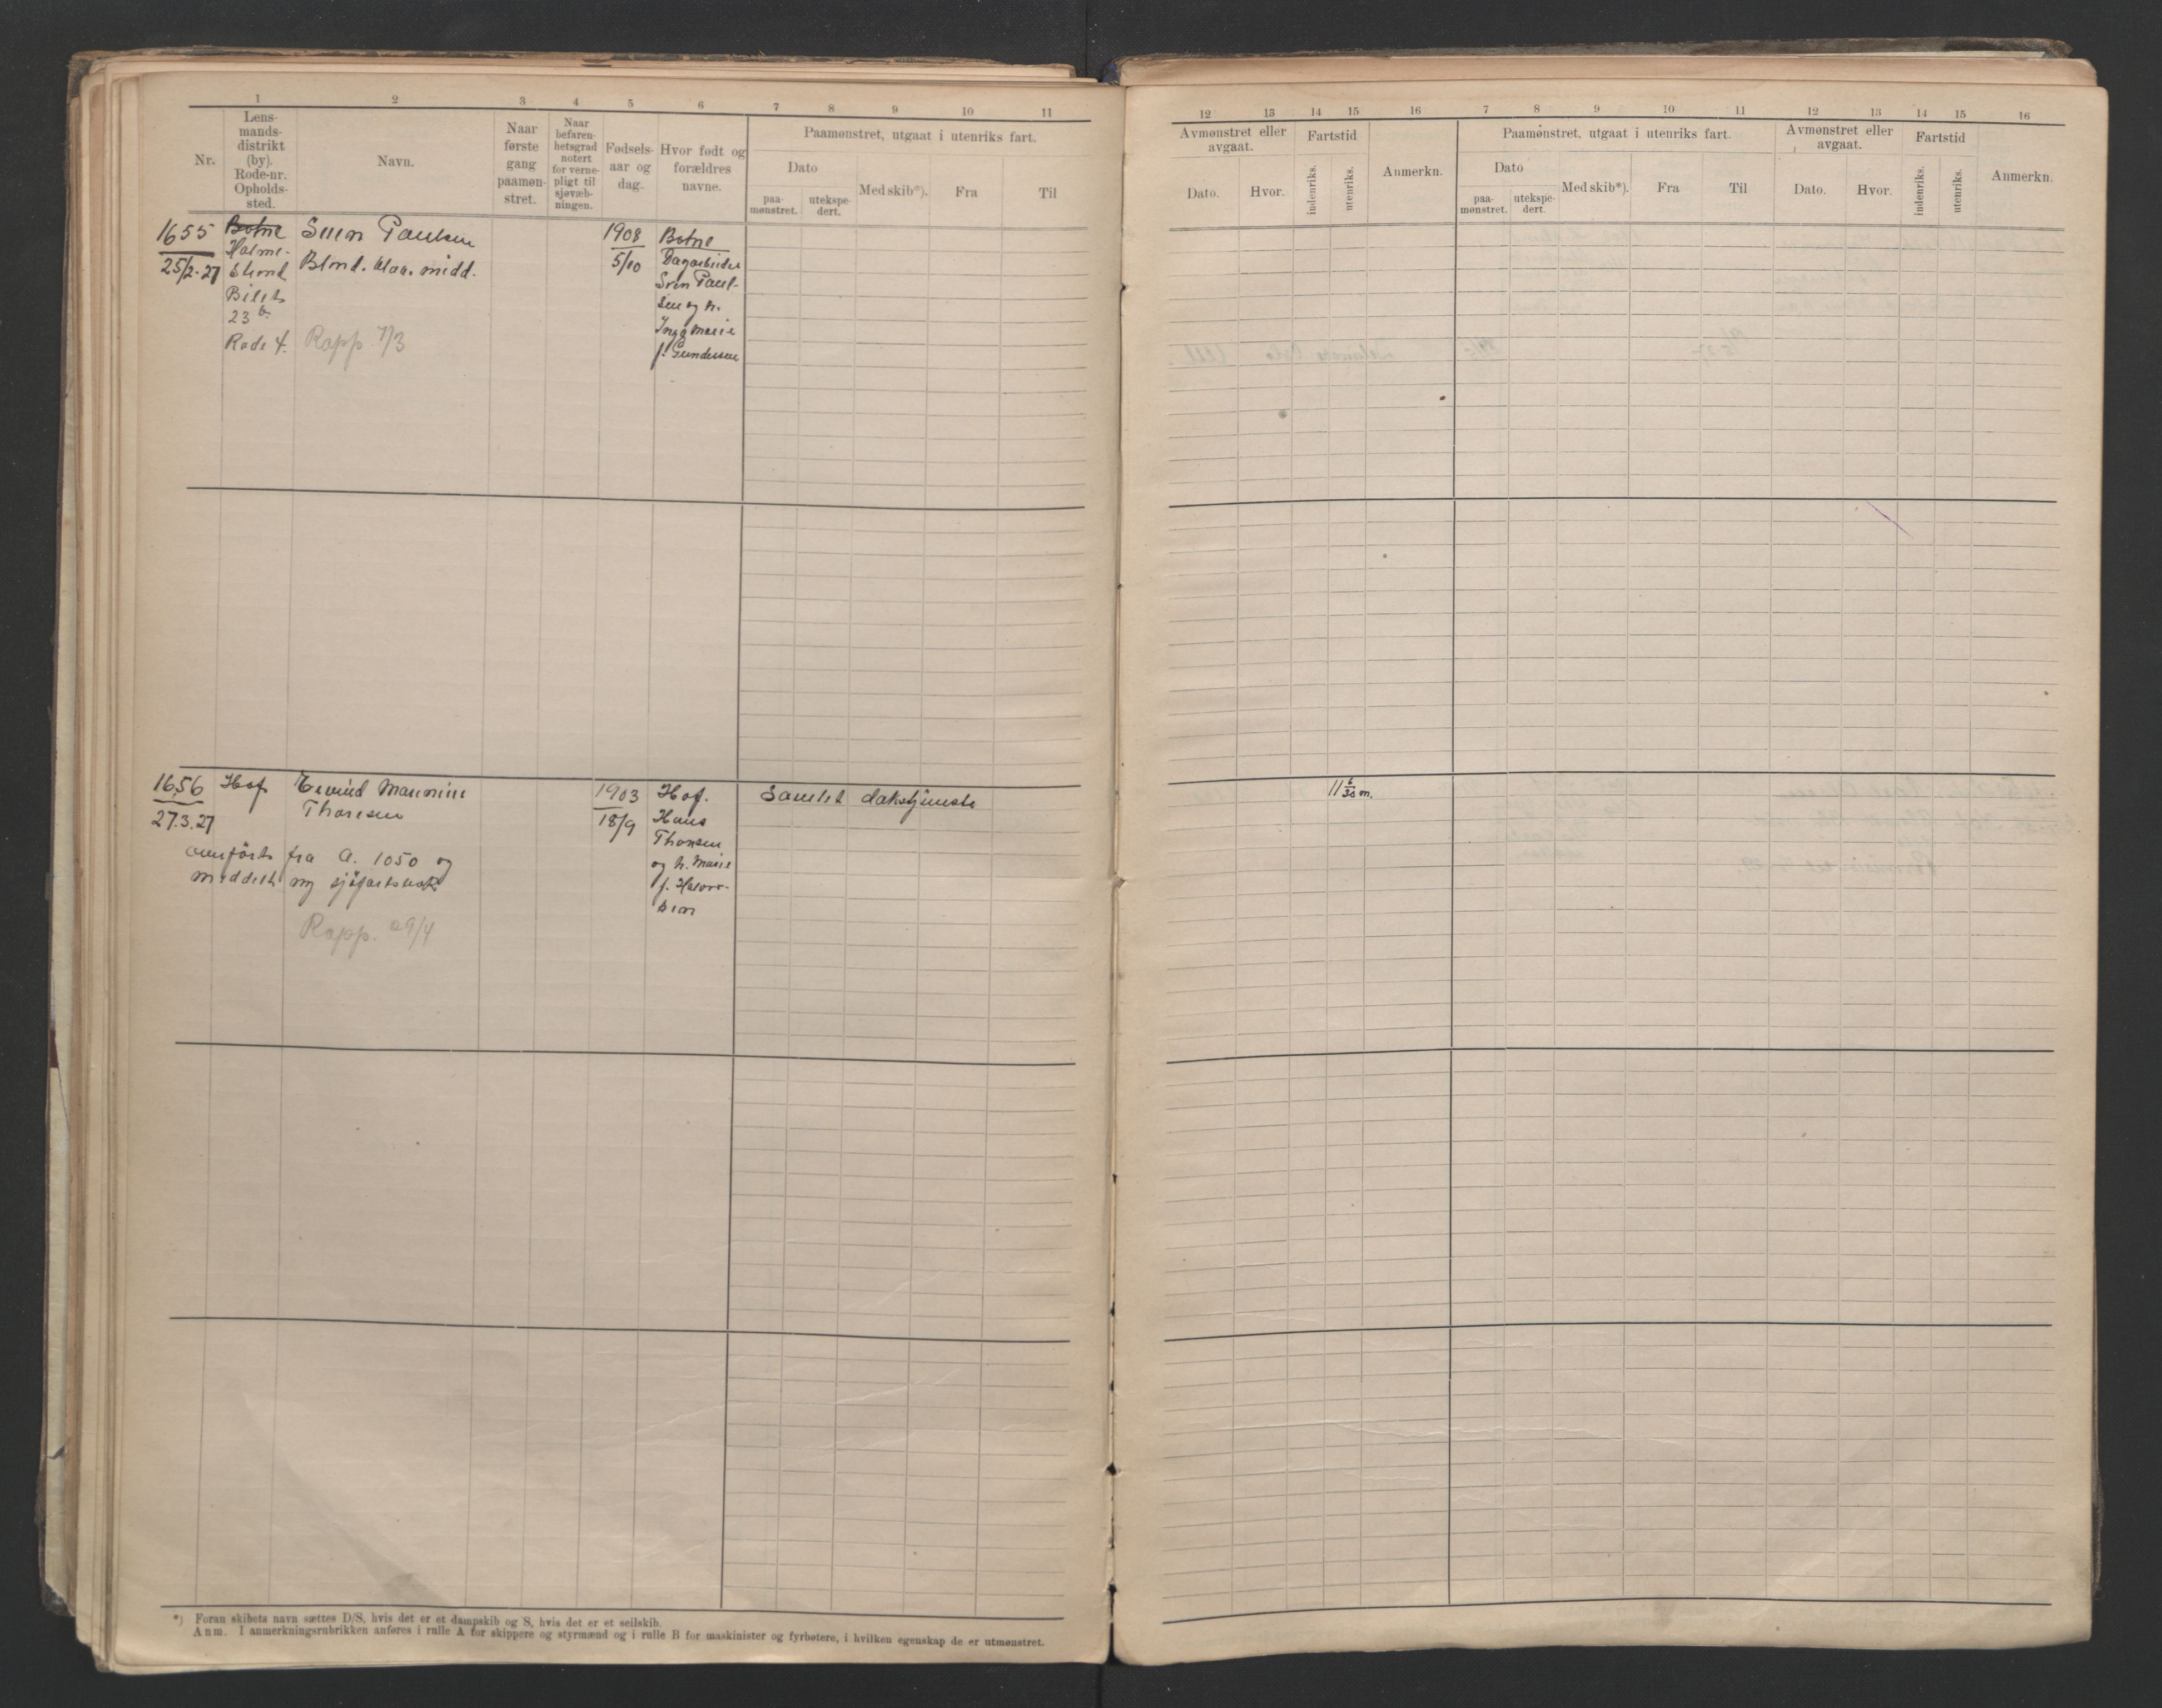 1 2 3 4 5 6 7 8 9 10 11
Nr.
Lens-
mands-
distrikt
(by).
Rode-nr.
Opholds-
sted.
Navn.
Naar
første
gang
paamøn-
stret.
Naar
befaren-
hetsgrad
notert
for verne-
pligt til
sjøvæb-
ningen.
Fødsels-
aar og
dag.
Hvor født og
forældres
navne.
Paamønstret, utgaat i utenriks fart.
Dato
paa-
mønstret.
utekspe-
dert.
Med skib*).
Fra
Til
1655
25/2-27
Botne
Holme-
strand
Bilets
23 b
Rode 4.
Sven Paulsen
Blond. blaa. midd.
Rapp. 7/3
1908
5/10
Botne
Dagarbeider
Sven Paul-
sen og h.
Inga Marie
f. Gundersen
1656
27.3.27
Hof
Eivind
Thoresen
overført fra A. 1050 og
meddelt ny sjøfartsbok
Rapp. 29/4
1903
18/9
Hof.
Hans
Thoresen
og h. Marie
f. Halvor-
sen
Samlet dækstjeneste
*) Foran skibets navn sættes D/S, hvis det er et dampskib og S, hvis det er et seilskib.
Anm. I anmerkningsrubrikken anføres i rulle A for skippere og styrmænd og i rulle B for maskinister og fyrbøtere, i hvilken egenskap de er utmønstret.
12 13 14 15 16 7 8 9 10 11 12 13 14 15 16
Avmønstret eller
avgaat.
Dato.
Hvor.
Fartstid
indenriks.
utenriks.
Anmerkn.
Paamønstret, utgaat i utenriks fart.
Dato
paa-
mønstret.
utekspe-
dert.
Med skib*).
Fra
Til
Avmønstret eller
avgaat.
Dato.
Hvor.
Fartstid
indenriks.
utenriks.
Anmerkn.
11 6/30 m.